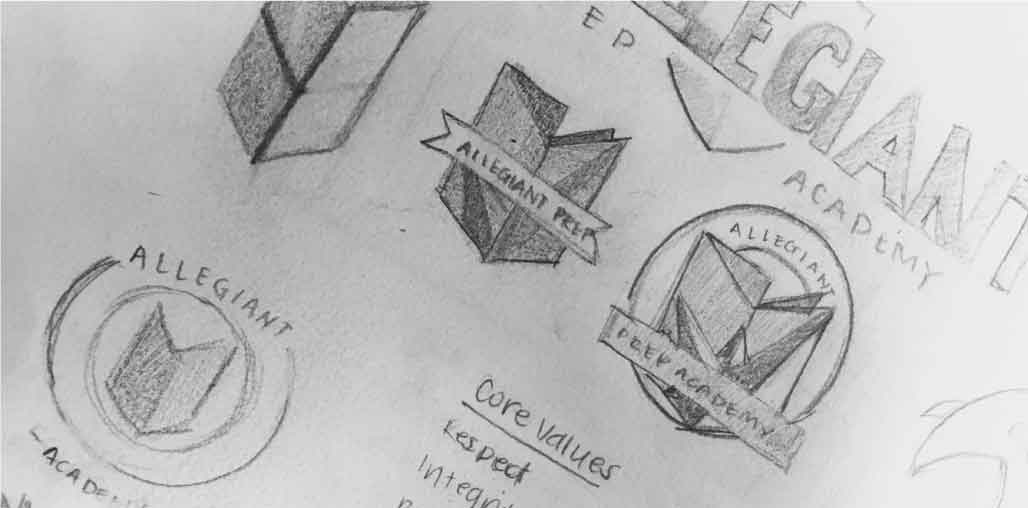 EP
LLEGIANT
ACADEMY
ALLEGIANT PREP
ALLEGIANT
PREP ACADEMY
ALLEGIANT
Core Values
Respect